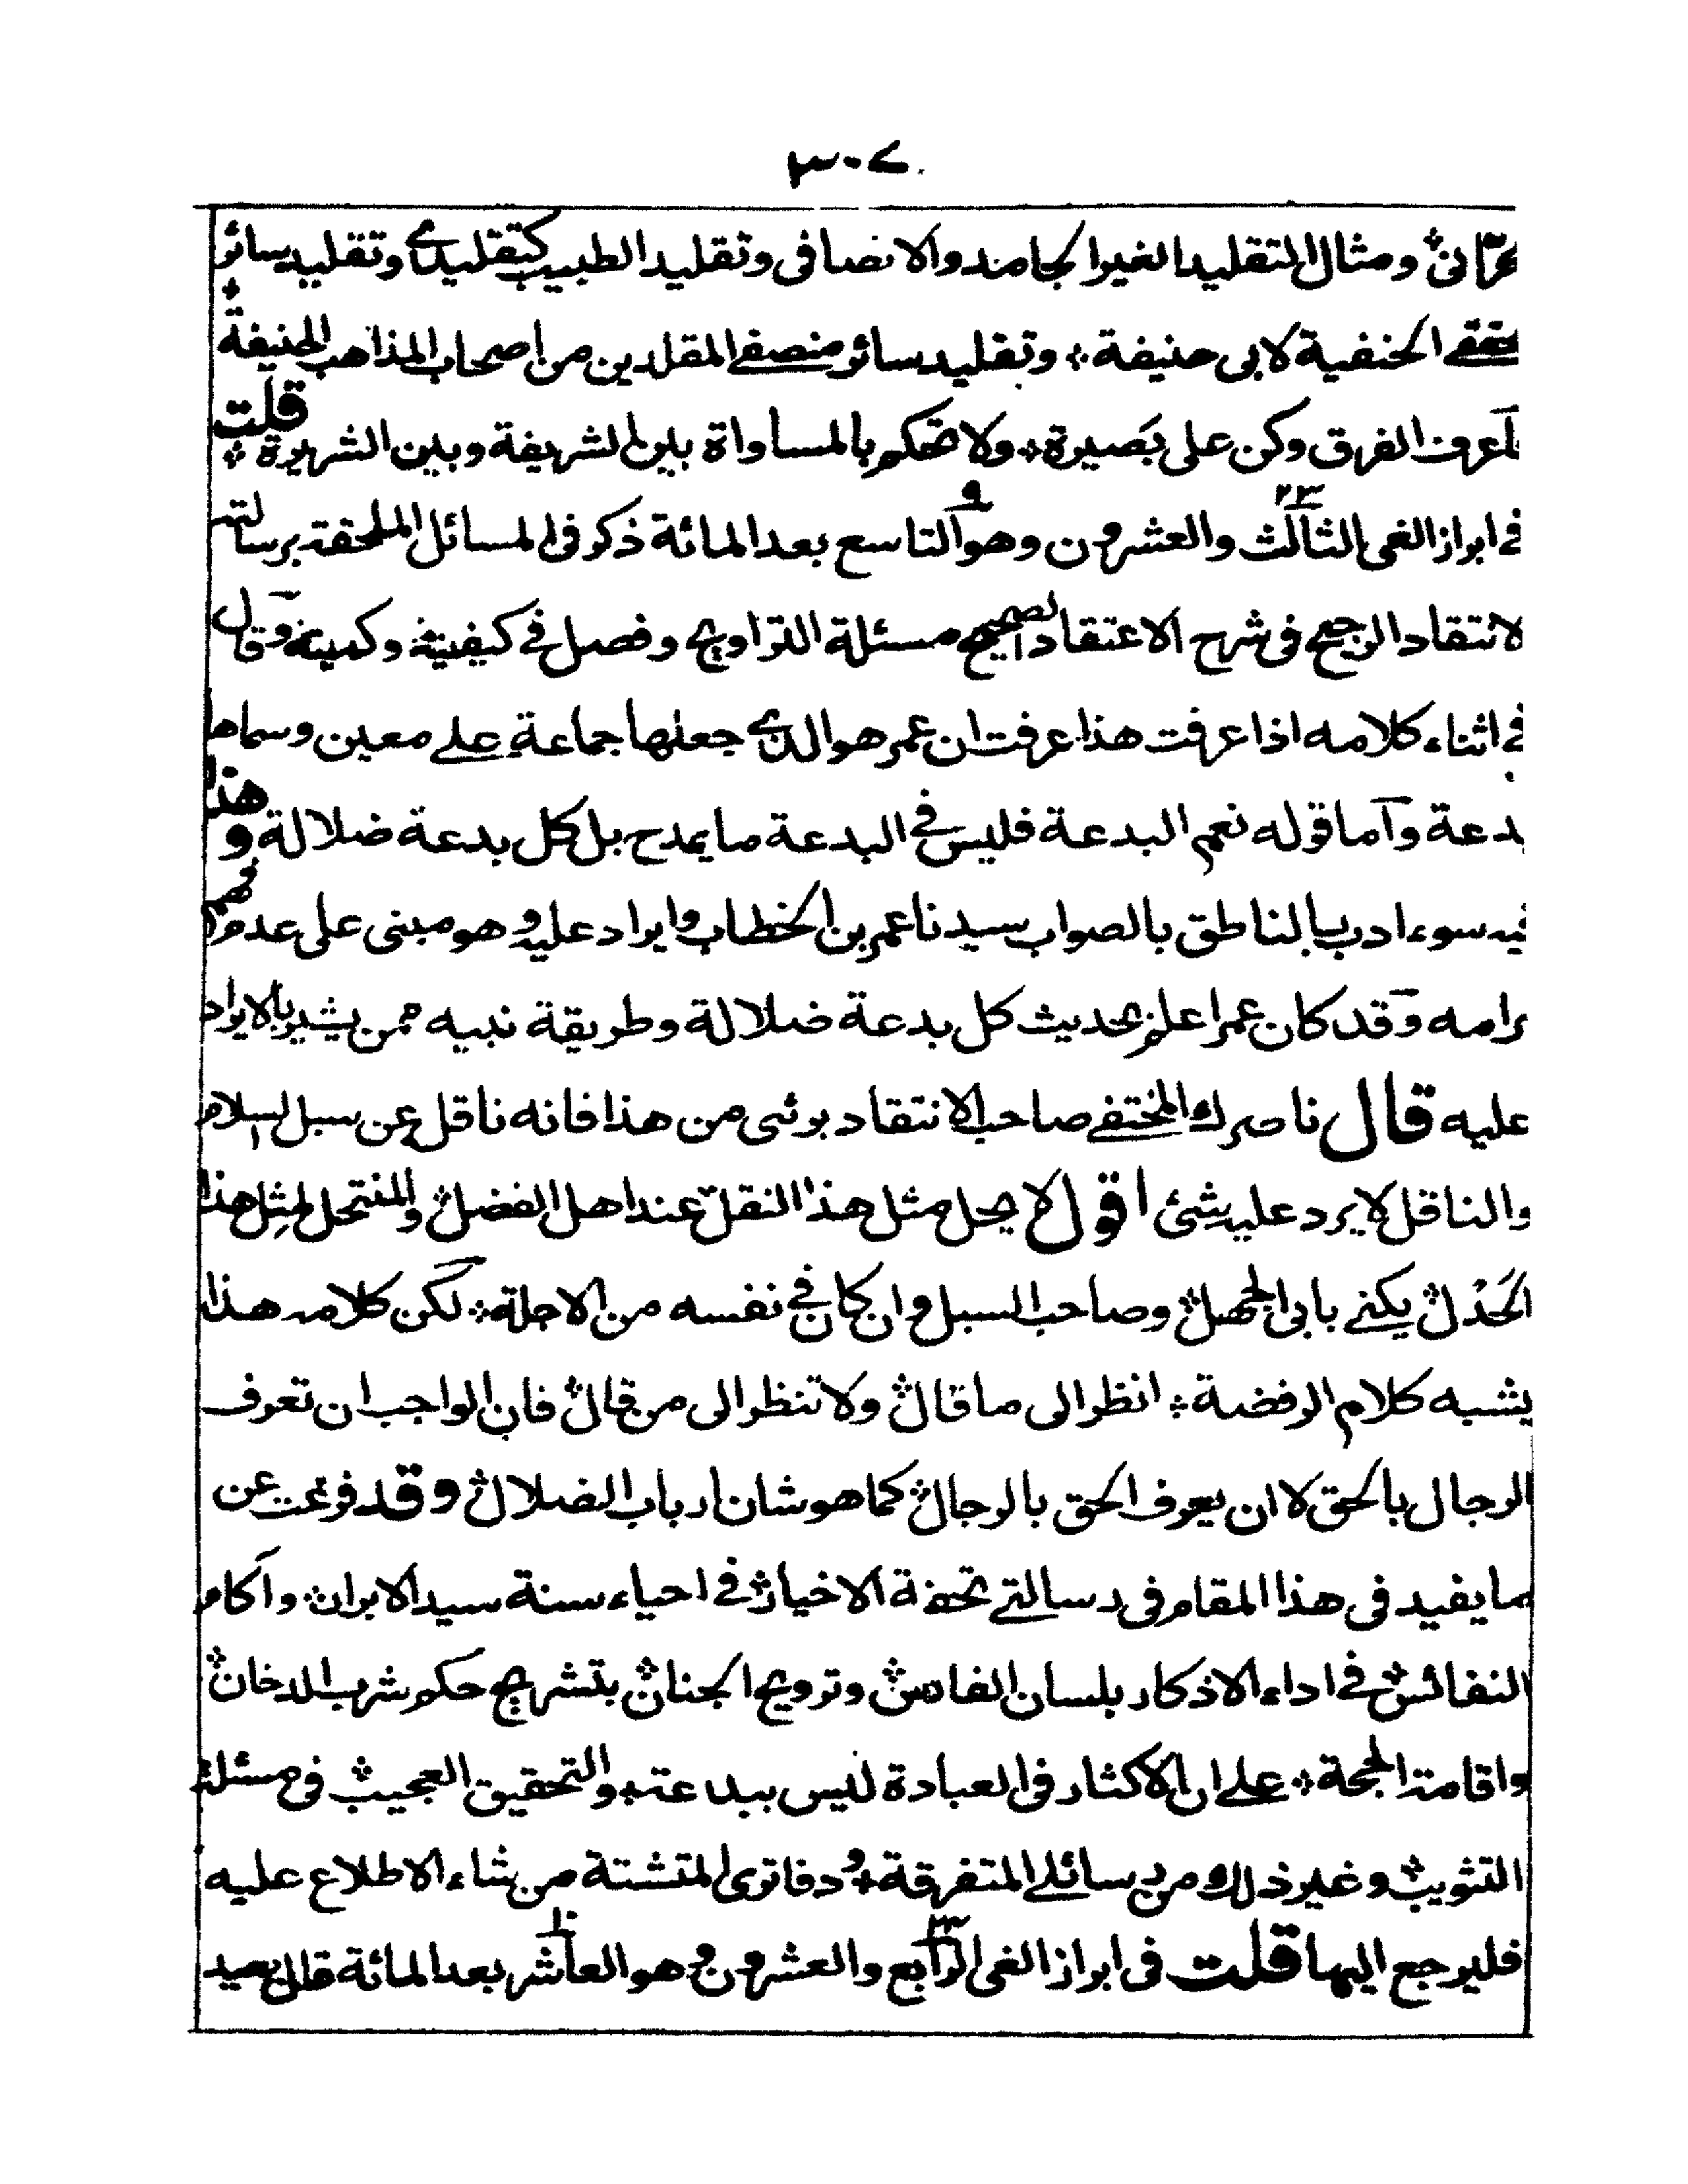 ٣٠٧
ومثال التقليد الغير الجامد والانصافى وتقليد الطبيب كتقليدى وتقليد سائر
الحنفية لابى حنيفة ؞ وتقليد سائر منصفے المقلدين من اصحاب المذاهب الحنيفة ؞
الفرق وكن على بَصيرة ؞ ولا تحكم بالمساواة بين الشريفة وبين الشريرة ؞ قلت
فے ابراز الغى الثالث ٢٣ والعشرون وهو التاسع بعد المائة ذكر فى المسائل الملحقة برسالته
لانتقاد الرجيح فى شرح الاعتقاد الصحيح مسئلة التراويح وفصل فے كيفيته وكميته وقال
فے اثناء كلامه اذا عرفت هذا عرفت ان عمر هو الذى جعلها جماعة علے معين وسماها
بدعة واما قوله نعم البدعة فليس فے البدعة ما يمدح بل كل بدعة ضلالة وهذا
فيه سوء ادب بالناطق بالصواب سيدنا عمر بن الخطاب وايراد عليه وهو مبنى على عدم فهم
مرامه وقد كان عمر اعلم بحديث كل بدعة ضلالة وطريقة نبيه ممن يشير بالايراد
عليه قال ناصرك المختفے صاحب الانتقاد برئى من هذا فانه ناقل عن سبل السلام
والناقل لا يرد عليه شئ اقول لا يحل مثل هذا النقل عند اهل الفضل ؞ والمنتحل لمثل هذا
الحَذل ؞ يكنے بابى الجهل ؞ وصاحب السبل وان كان فے نفسه من الاجلة ؞ لكن كلامه هذا
يشبه كلام الرفضة ؞ انظر الى ما قال ؞ ولا تنظر الى من قال ؞ فان الواجب ان تعرف
الرجال بالحق لا ان يعرف الحق بالرجال ؞ كما هو شان ارباب الضلال ؞ وقد فرغت عن
ما يفيد فى هذا المقام فى رسالتے تحفة الاخيار ؞ فے احياء سنة سيد الابرار ؞ واكام
النفائس ؞ فے اداء الاذكار بلسان الفارس ؞ وترويح الجنان ؞ بتشريح حكم شرب الدخان ؞
واقامة الحجة ؞ علے ان الاكثار فى العبادة ليس ببدعة ؞ والتحقيق العجيب ؞ فى مسئلة
التثويب ؞ وغير ذلك من رسائلے المتفرقة ؞ ودفاترى المتشتة من شاء الاطلاع عليه
فليرجع اليها قلت فى ابراز الغى الرابع ٢٤ والعشرون وهو العاشر بعد المائة قال بعيد